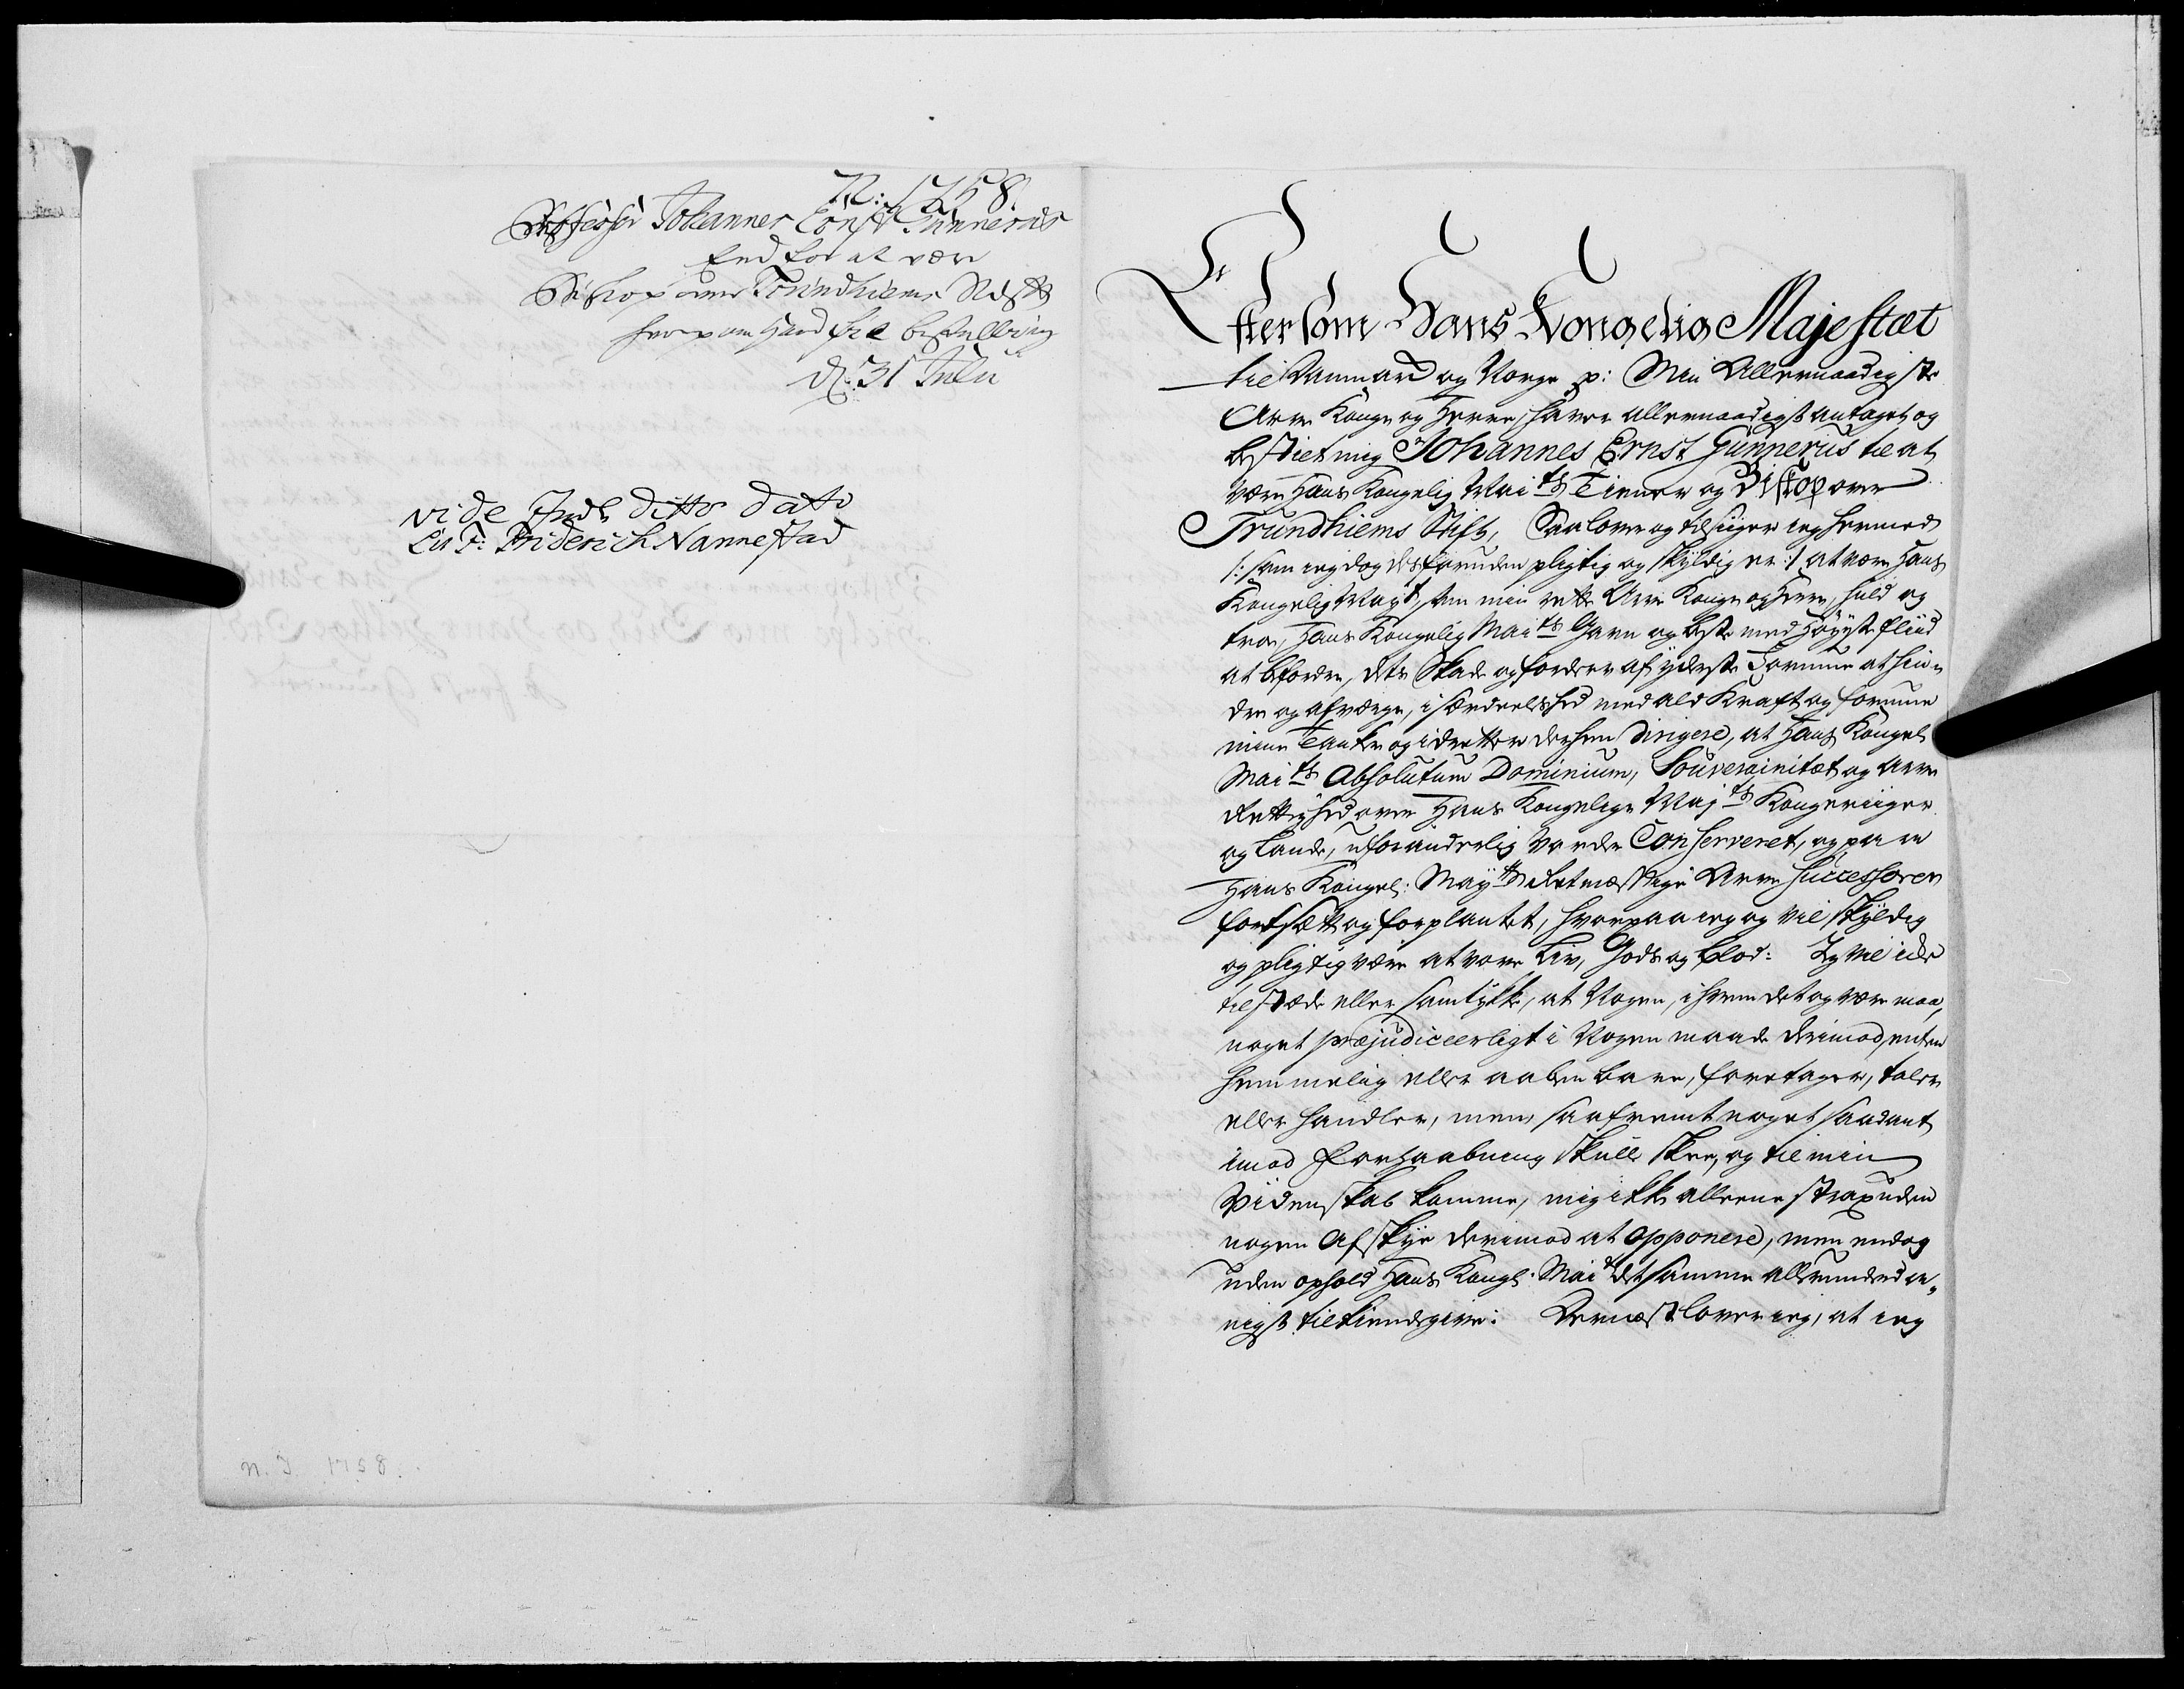 N: 1758.
Professor Johannes Ernst Gunnerus
Eed for at være
Biskop over Trundhiems Stift
hvorpaa Hand fik bestalling
d: 31 Julii
vide Indl: ditto dato
Lit F: Friderich Nannestad
n. I. 1758.
Eftersom Hans Kongelig Majestæt
til Danmark og Norge p: Min Allernaadigste
Arve Konge og Herre, haver allernaadigst antaget og
bestilt mig Johannes Ernst Gunnerus til at
være Hans Kongelig Mai ts Tiener og Biskop over
Trundhiems Stift, Saa lover og tilsiger ieg hermed
/: som ieg dog desforuden pligtig og skyldig er :/ at være Hans
Kongelig Mayt, som min rette Arve Konge og Herre, huld og
troe, Hans Kongelig Mai ts Gavn og beste med høyeste fliid
at befordre, dets Skade og fordærv af yderste Formue at hin-
dre og afværge, i særdeelished med ald Kraft og formue
mine Tanker og idrætter derhen dirigere, at Hans Kongel
Mai ts Absolutum Dominium, Souverainitet og Arve
Rettighed over Hans Kongelige Maj ts Kongeriiger
og Lande, uforanderlig vorder Conserveret, og paa
Hans Kongel: May ts Retmæssige Arve Successorer
fortsætt og forplantet, hvorpaa ieg og vil skyldig
og pligtig være at vove Liv, Gods og Blod: Ieg vil icke
tilstæde eller samtykke, at Nogen, i hvem det og være maa,
noget præjudiceerligt i Nogen maade derimod, enten
hemmelig eller aabenbare, foretager, taler
eller handler, men saafremt noget saadant
imod Forhaabning skulle skee, og til min
Videnskab komme, mig ikke alleene strax uden
nogen Afskye derimod at opponere, men endog
uden ophold Hans Kongl: Mai t det samme allerunderda-
nigst tilkiendegive: Dernæst lover ieg, at ieg